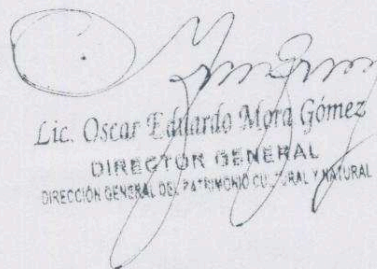 Lic. Oscar Eduardo Mora Gómez
DIRECTOR GENERAL
DIRECCIÓN GENERAL DEL PATRIMONIO CULTURAL Y NATURAL